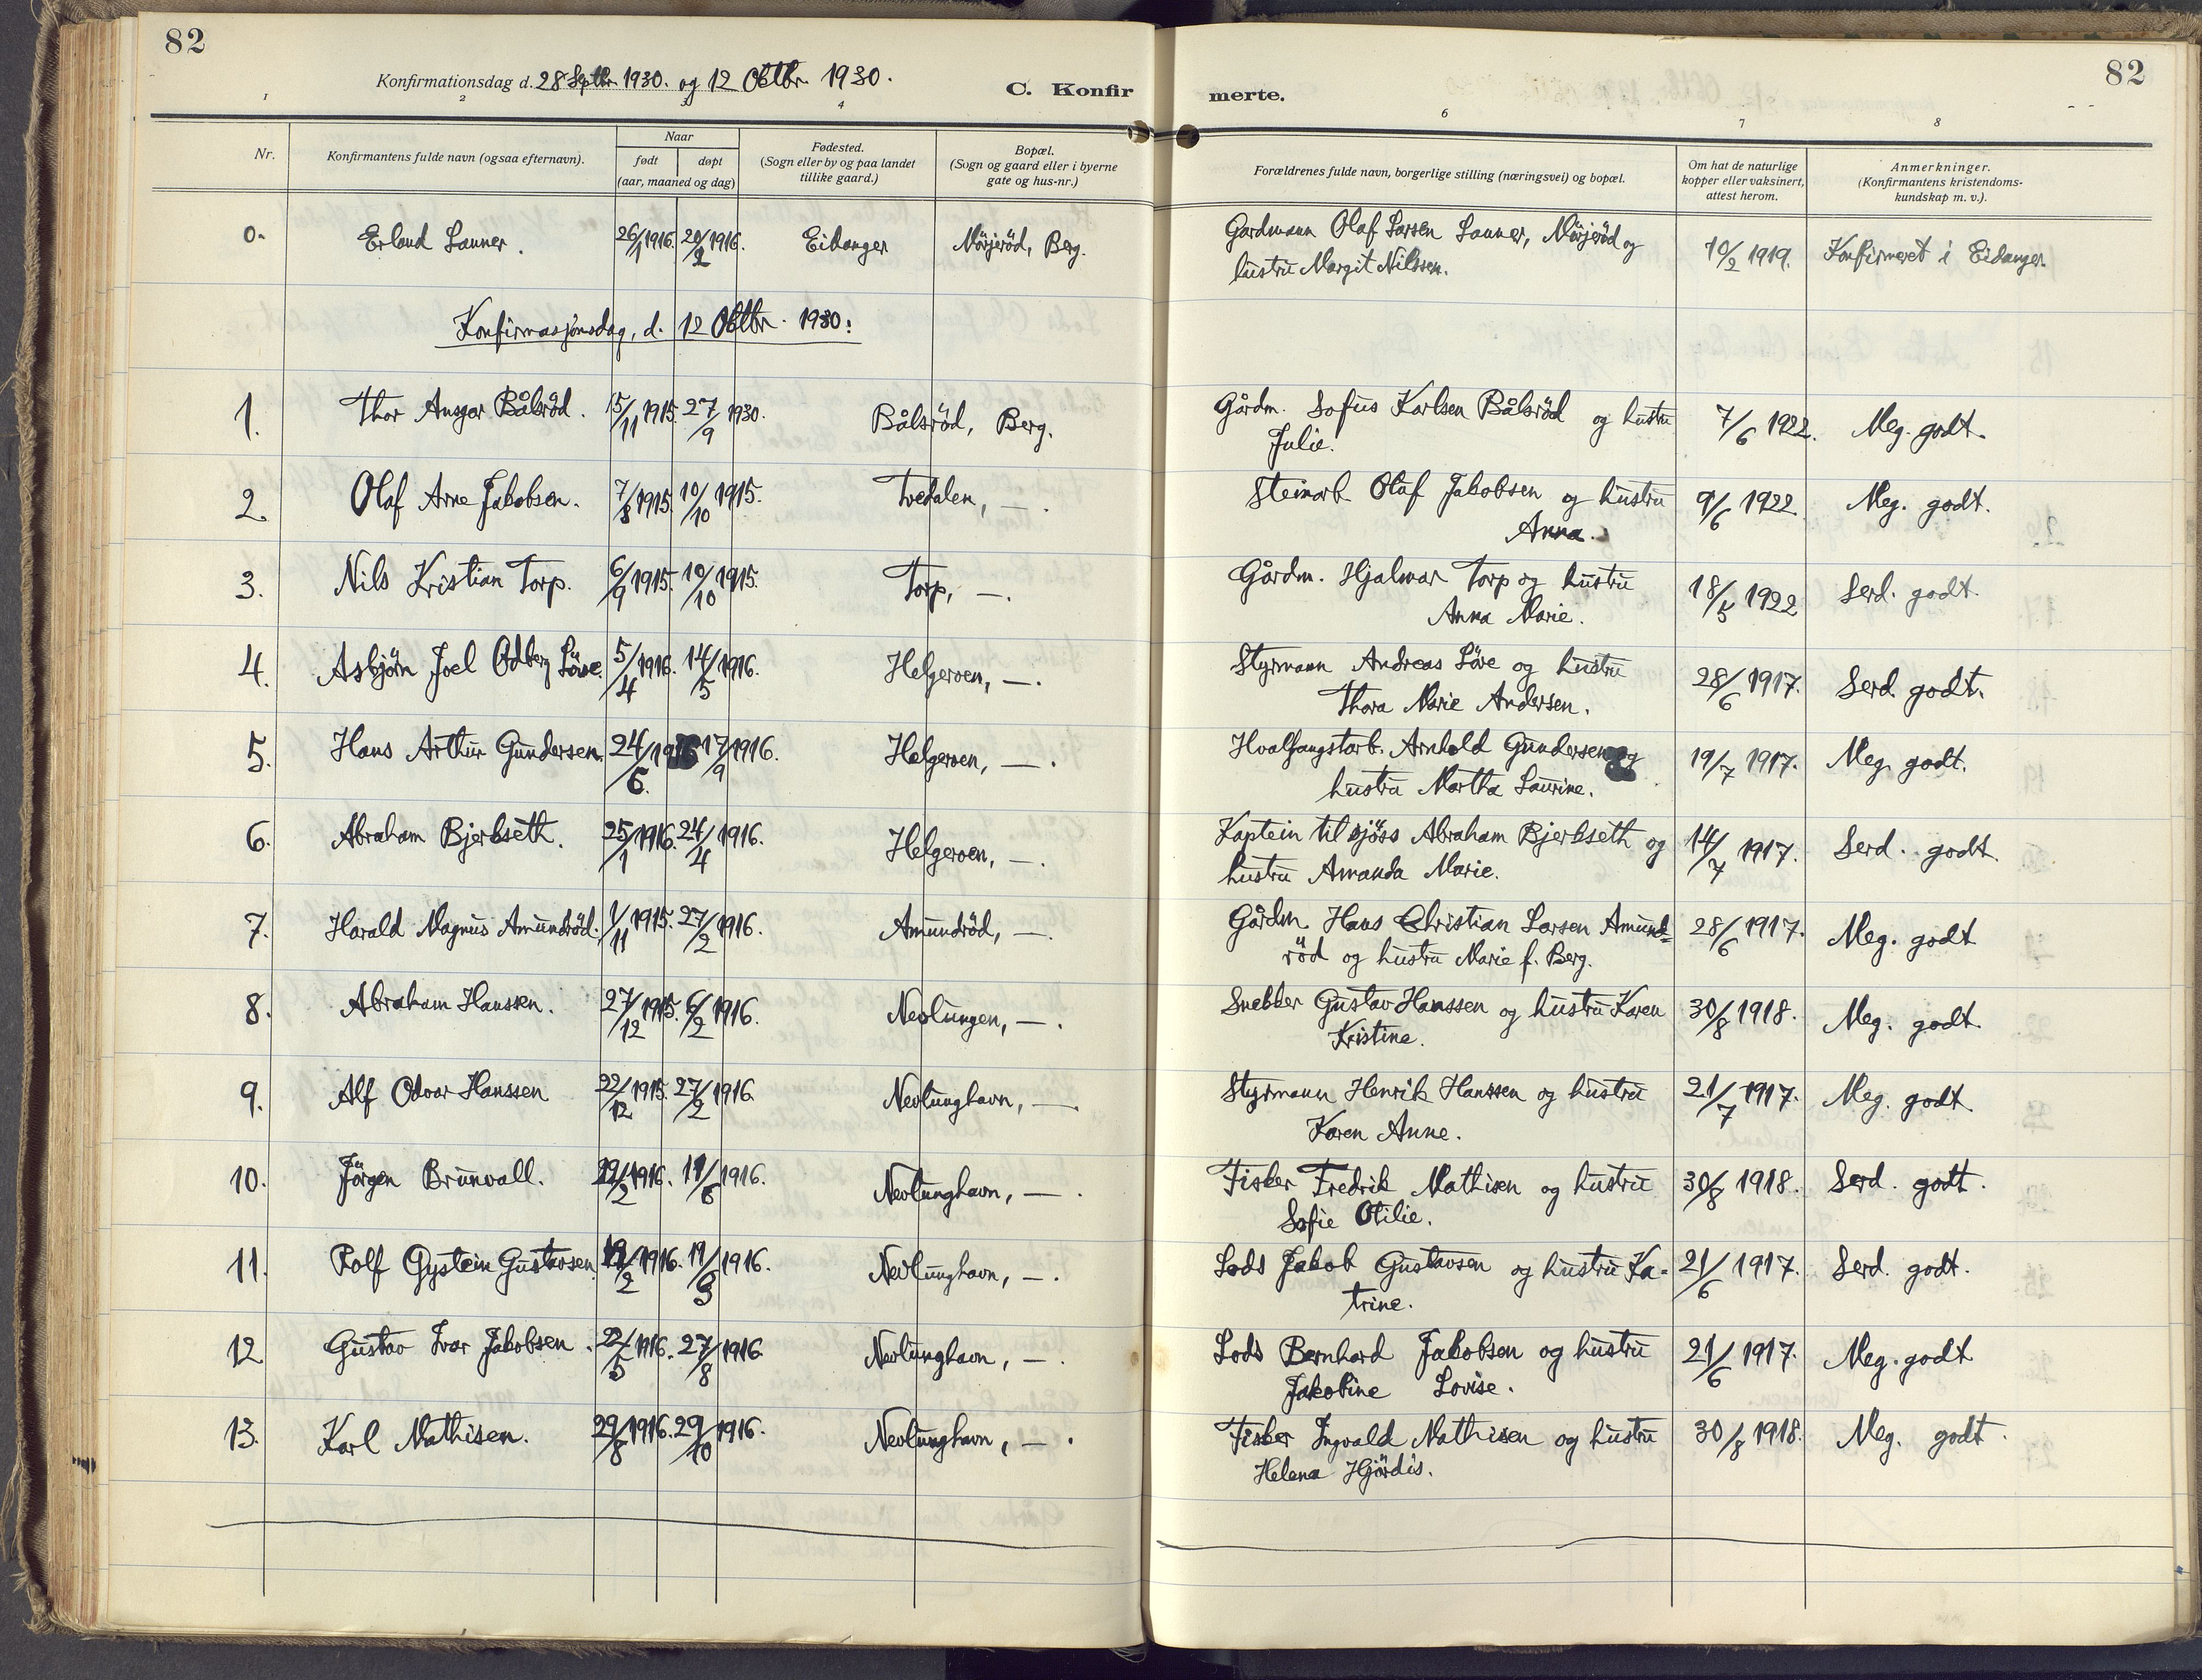 82
82
Konfirmationsdag d. 28 Septbr. 1930. og 12 Oktbr. 1930.
C. Konfir merte.
1 2 3 4 6 7 8
Nr.
Konfirmantens fulde navn (ogsaa efternavn).
Naar
født døpt
(aar, maaned og dag)
Fødested.
(Sogn eller by og paa landet
tillike gaard.)
Bopæl.
(Sogn og gaard eller i byerne
gate og hus-nr.)
Forældrenes fulde navn, borgerlige stilling (næringsvei) og bopæl.
Om hat de naturlige
kopper eller vaksinert,
attest herom.
Anmerkninger.
(Konfirmantens kristendoms-
kundskap m. v.).
0. Erland Lanner. 26/1 1916. 20/2 1916. Eidanger Nørjerød, Berg. Gardmann Olaf Larsen Lanner, Nørjerød og 10/2 1919. Konfirmeret i Eidanger.
hustru Margit Nilssen.
Konfirmasjonsdag, d. 12 Oktbr. 1930:
1. Thor Ansgar Bålsröd. 15/11 1915. 27/9 1930. Bålsröd, Berg. Gårdm. Sofus Karlsen Bålsröd og hustru 7/6 1922. Meg. godt.
Julie.
2. Olaf Arne Jakobsen. 7/8 1915. 10/10 1915. Tvedalen, —. Steinarb. Olaf Jakobsen og hustru 9/6 1922. Meg. godt.
Anna.
3. Nils Kristian Torp. 6/9 1915. 10/10 1915. Torp, —. Gårdm. Hjalmar Torp og hustru 18/5 1922 Serd. godt.
Anna Marie.
4. Asbjörn Joel Odberg Löve. 5/4 1916. 14/5 1916. Helgeroen, —. Styrmann Andreas Löve og hustru 28/6 1917. Serd. godt.
Thora Marie Andersen.
5. Hans Arthur Gundersen. 24/6. 1916 17/9 1916. Helgeroen, —. Hvalfangstarb. Arnhold Gundersen og 19/7 1917. Meg. godt.
hustru Martha Laurine.
6. Abraham Bjerkseth. 25/1 1916. 24/4 1916. Helgeroen, —. Kaptein til sjöss Abraham Bjerkseth og 14/7 1917. Serd. godt.
hustru Amanda Marie.
7. Harald Magnus Amundröd. 1/11 1915. 27/2 1916. Amundröd, —. Gårdm. Hans Christian Larsen Amund= 28/6 1917. Meg. godt
röd og hustru Marie f. Berg.
8. Abraham Hanssen. 27/12 1915. 6/2 1916. Nevlungen, —. Snekker Gustav Hanssen og hustru Karen 30/8 1918. Meg. godt.
Kristine.
9. Alf Odvar Hanssen 22/12 1915. 27/2 1916. Nevlunghavn, —. Styrmann Henrik Hanssen og hustru 21/7 1917. Meg. godt.
Karen Anne.
10. Jörgen Brunvall. /2 1916. 11/6 1916. Nevlunghavn, —. Fisker Fredrik Mathisen og hustru 30/8 1918. Serd. godt.
Sofie Otilie.
11. Rolf Øystein Gustavsen. /2 1916. 1916. Nevlunghavn, —. Lods Jakob Gustavsen og hustru Ka- 21/6 1917. Serd. godt.
trine.
12. Gustav Ivar Jakobsen. 22/5 1916. 27/8 1916. Nevlunghavn, —. Lods Bernhard Jakobsen og hustru 21/6 1917. Meg. godt.
Jakobine Lovise.
13. Karl Mathisen. 29/8 1916. 29/10 1916. Nevlunghavn, —. Fisker Ingvald Mathisen og hustru 30/8 1918. Meg. godt.
Helena Hjördis.